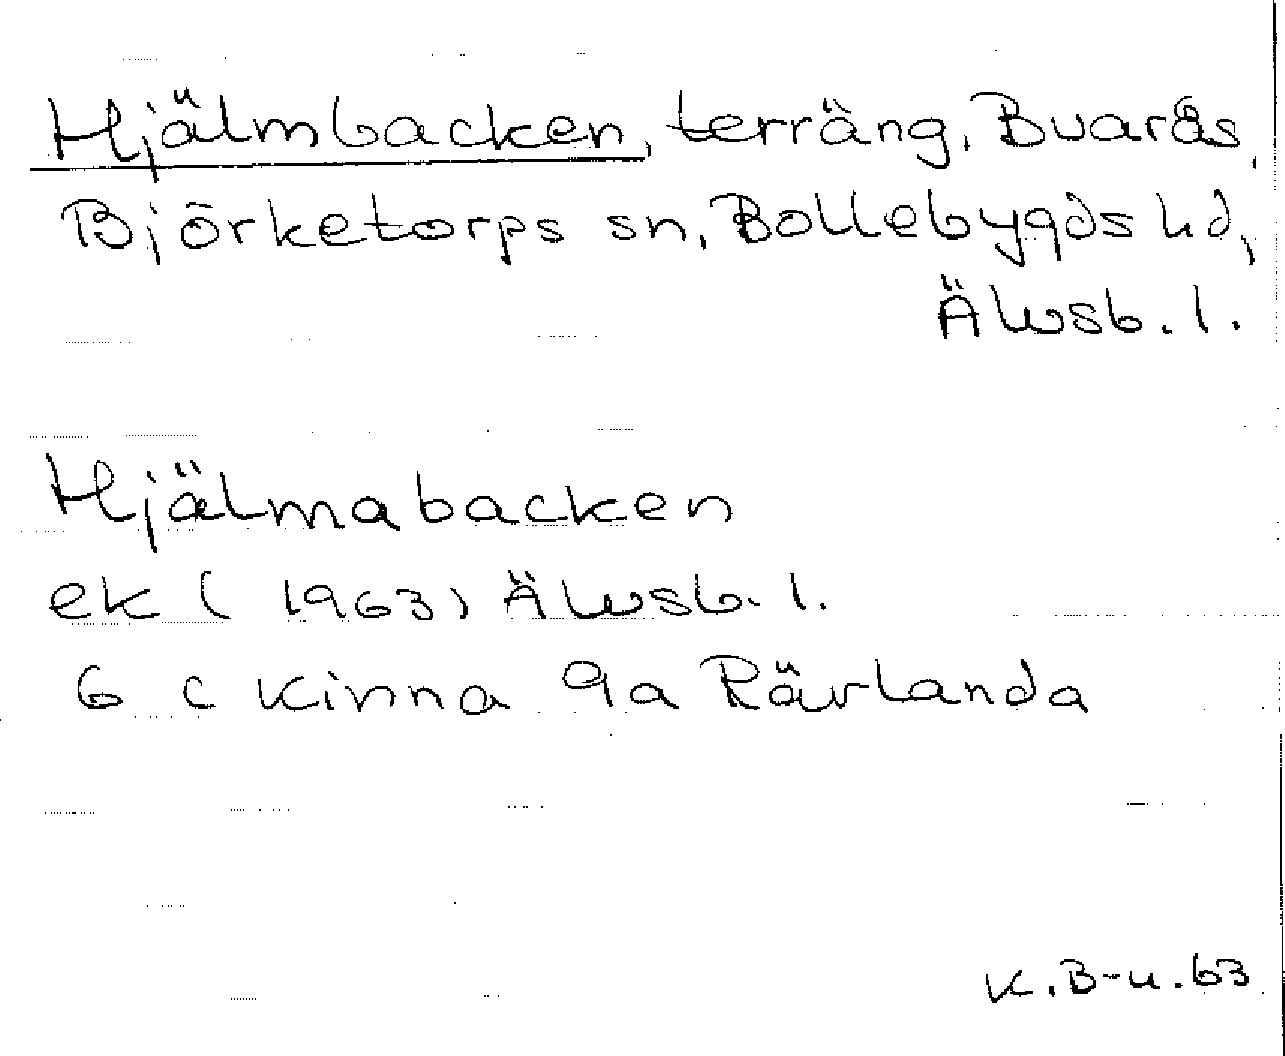 Hjälmbacken, terräng, Buarås,
Björketorps sn, Bollebygds hd,
Älvsb. l.
Hjälmabacken
ek (1963) Älvsb. l.
6 c Kinna 9a Rävlanda
K.B-u.63